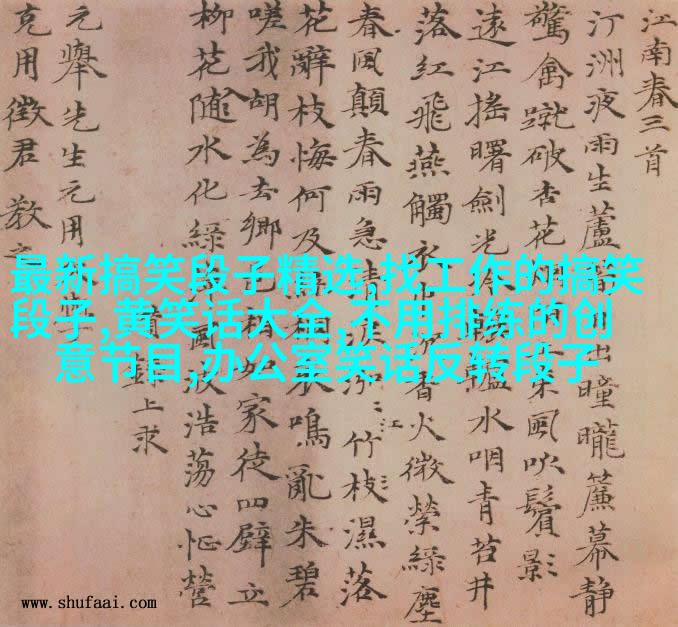 最新搞笑段子精选,找工作的搞笑
段子,黄笑话大全,不用排练的创
意节目,办公室笑话反转段子
江南春三首
汀洲夜雨生蘆出曈曨簾幕静
驚禽蹴破杏花東風吹鬢影
遠江摇曙劍光水咽青苔井
落紅飛燕觸衣香火微縈緑塵
春風顛春雨急清泓江竹枝濕落
花辭枝悔何及桐哀鳴亂朱碧
嗟我胡為去鄉邑相如家徒四壁立
柳花随水化緑風波浩蕩心怔營
上求
元舉先生元用
克用徵君教之
www.shufaai.com